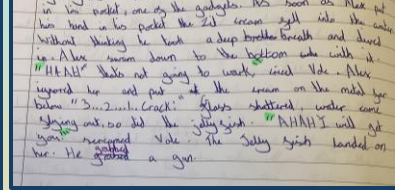 in his pocket, one of the gadgets. As soon as Alex put
his hand in his pocket the Zit cream fell into the water
Without thinking he took a deep brother breath and dived
in. Alex swam down to the bottom with it.
"HAH" thats not going to work, cried Vole. Alex
ignored her and put all the cream on the metal bar
below "3...2...1. Crack!" glass shattered, water came
flying out, so did the jelly fish. "AHAH I will get
you" screamed Vole. The Jelly fish landed on
her. He grabbed a gun.